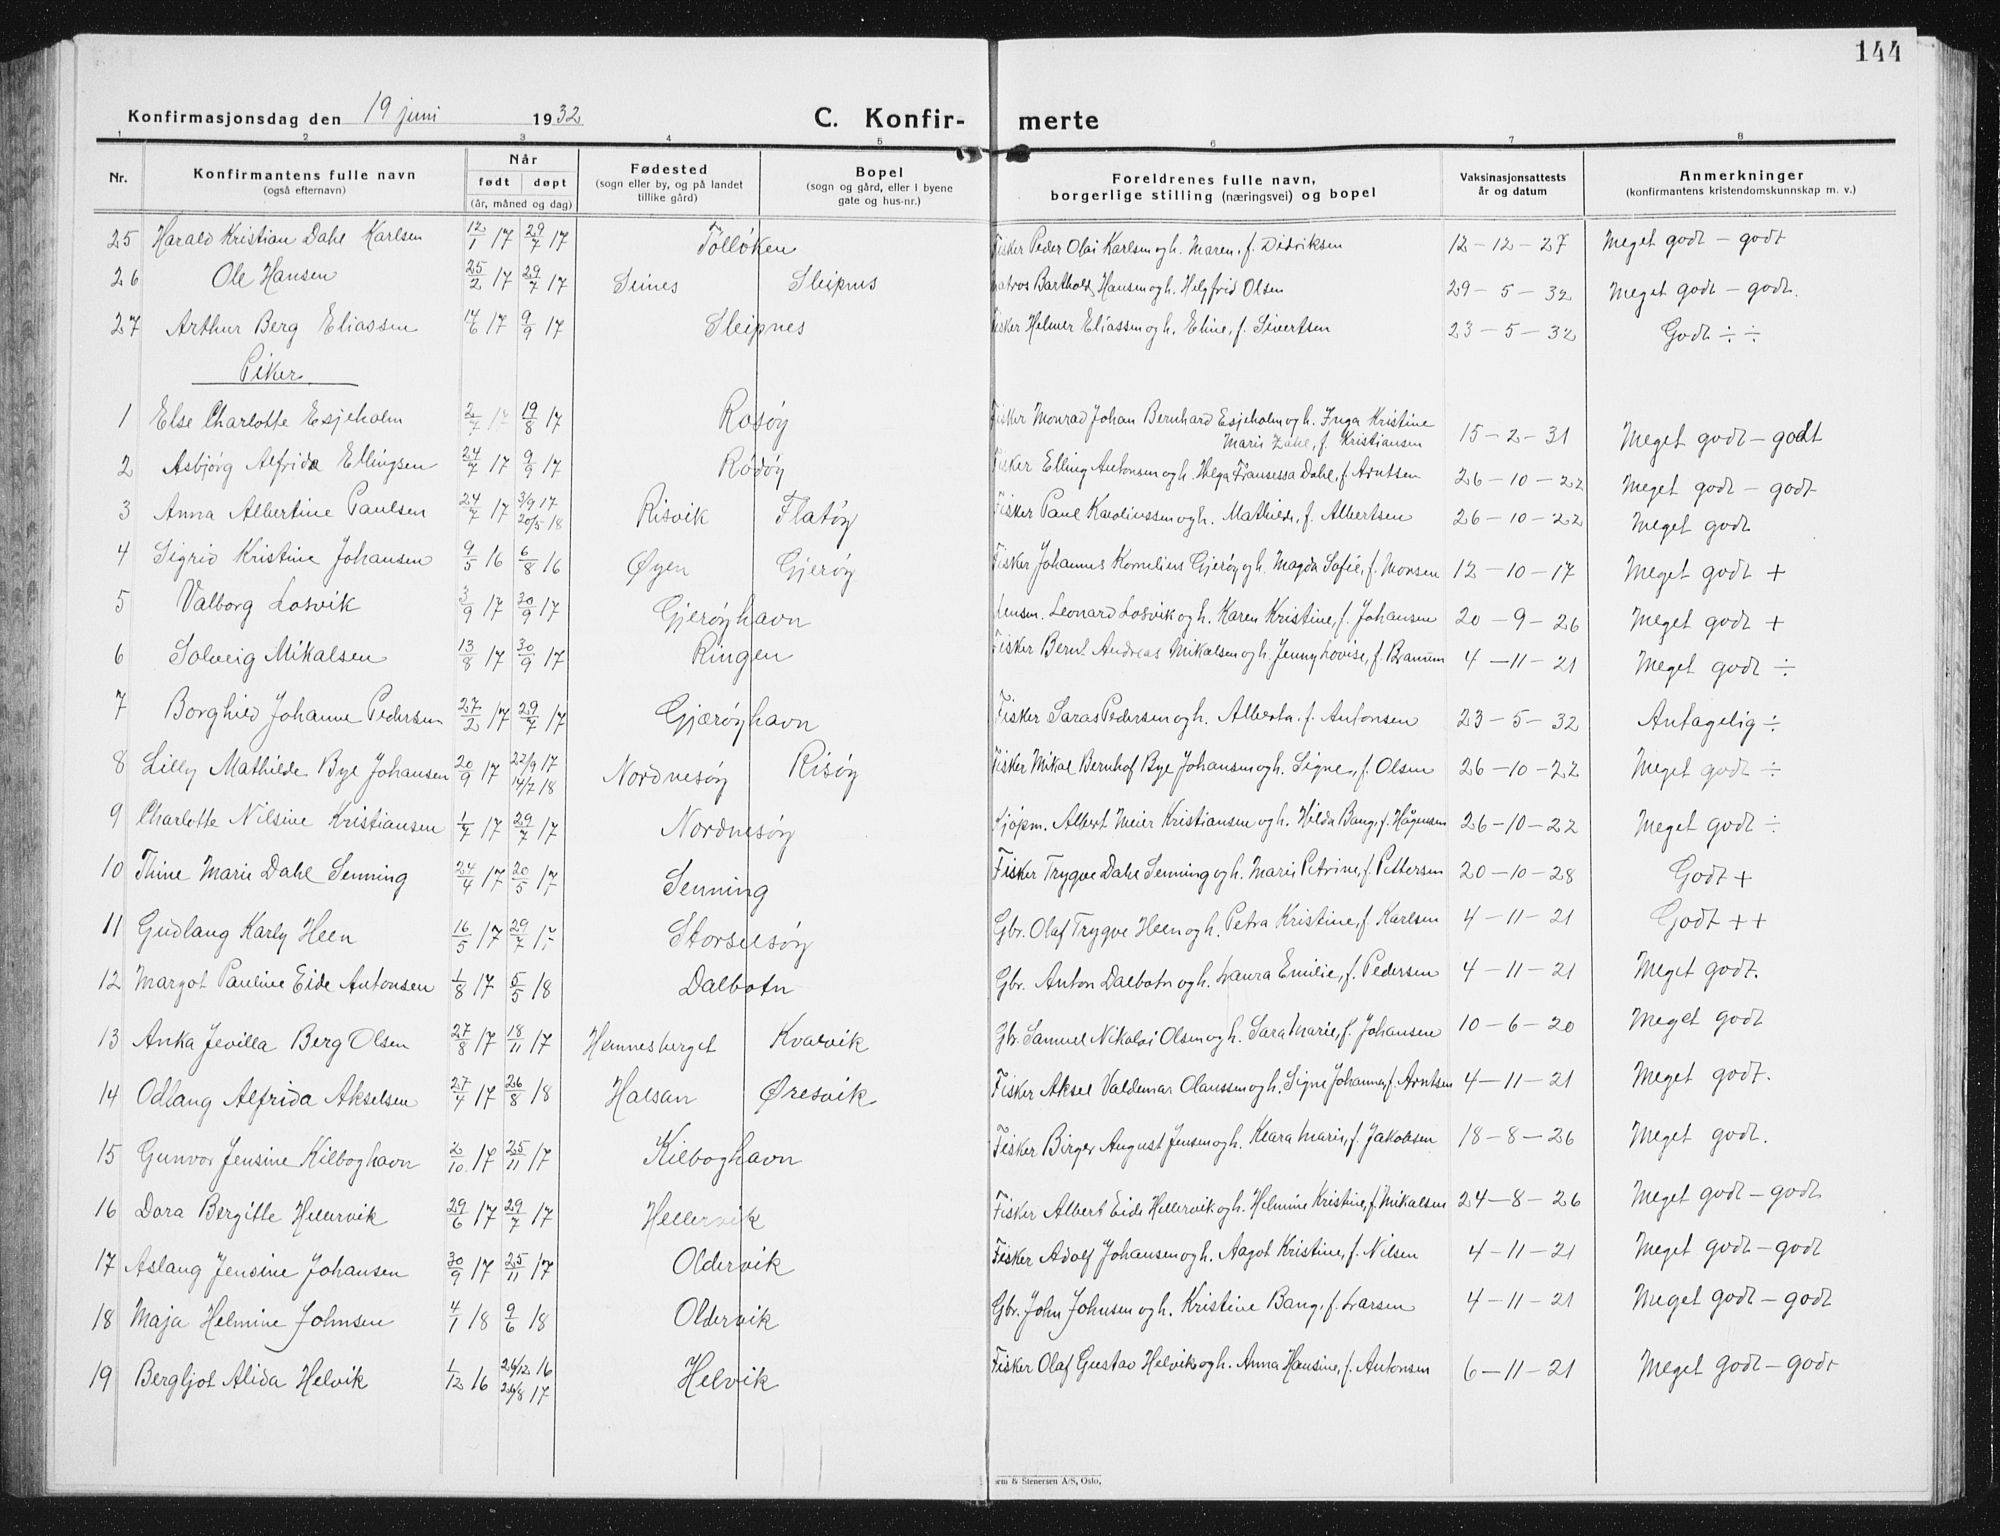 144
Konfirmasjonsdag den 19 juni 1932 C. Konfir- merte
1 2 3 4 5 6 7 8
Nr. Konfirmantens fulle navn (også efternavn) Når født døpt (år, måned og dag) Fødested (sogn eller by, og på landet tillike gård) Bopel (sogn og gård, eller i byene gate og hus-nr.) Foreldrenes fulle navn, borgerlige stilling (næringsvei) og bopel Vaksinasjonsattests år og datum Anmerkninger (konfirmantens kristendomskunnskap m. v.)
25 Harald Kristian Dahl Karlsen 12/1 17 29/7 17 Tolløken Fisker Peder Olai Karlsen og h. Maren, f. Didriksen 12-12-27 Meget godt - godt
26 Ole Hansen 25/2 17 29/7 17 Seines Sleipnes Barthold Hansen og h. Helgfrid Olsen 29-5-32 Meget godt - godt.
27 Arthur Berg Eliassen 14/6 17 9/9 17 Sleipnes Fisker Helmer Eliassen og h. Eline, f. Sivertsen 23-5-32 Godt ÷ ÷
Piker
1 Else Charlotte Esjeholm 2/7 17 19/8 17 Rosøy Fisker Monrad Johan Bernhard Esjeholm og h. Inga Kristine Marie Zahl, f. Kristiansen 15-2-31 Meget godt - godt
2 Asbjørg Alfrida Ellingsen 24/7 17 9/9 17 Rødøy Fisker Elling Antonsen og h. Helga Fransessa Dahl, f. Arntsen 26-10-22 Meget godt - godt
3 Anna Albertine Paulsen 24/7 17 3/9 17 20/5 18 Risvik Flatøy Fisker Paul Karoliussen og h. Mathilde, f. Albertsen 26-10-22 Meget godt
4 Sigrid Kristine Johansen 9/5 16 6/8 16 Øyen Gjerøy Fisker Johannes Kornelius Gjerøy og h. Magda Sofie, f. Monsen 12-10-17 Meget godt +
5 Valborg Losvik 3/9 17 30/9 17 Gjerøyhavn Leonard Losvik og h. Karen Kristine, f. Johansen 20-9-26 Meget godt +
6 Solveig Mikalsen 13/8 17 30/9 17 Ringen Fisker Bernt Andreas Mikalsen og h. Jenny Lovise, f. 4-11-21 Meget godt ÷
7 Borghild Johanne Pedersen 27/2 17 29/7 17 Gjærøyhavn Fisker Saras Pedersen og h. Alberta, f. Antonsen 23-5-32 Antagelig ÷
8 Lilly Mathilde Bye Johansen 20/9 17 22/9 17 14/7 18 Nordnesøy Risøy Fisker Mikal Bernhof Bye Johansen og h. Signe, f. Olsen 26-10-22 Meget godt ÷
9 Charlotte Nilsine Kristiansen 1/7 17 29/7 17 Nordnesøy Kjøpm. Albert Meier Kristiansen og h. Hilda Bang, f. Hågensen 26-10-22 Meget godt ÷
10 Thine Marie Dahl Senning 24/4 17 20/5 17 Senning Fisker Trygve Dahl Senning og h. Marie Petrine, f. Pettersen 20-10-28 Godt +
11 Gudlaug Karly Heen 16/5 17 29/7 17 Storselsøy Gbr. Olaf Trygve Heen og h. Petra Kristine, f. Karlsen 4-11-21 Godt ++
12 Margot Pauline Eide Antonsen 1/8 17 5/5 18 Dalbotn Gbr. Anton Dalbotn og h. Laura Emilie, f. Pedersen 4-11-21 Meget godt.
13 Anka Jevilla Berg Olsen 27/8 17 18/11 17 Hemnesberget Kvarvik Gbr. Samuel Nikolai Olsen og h. Sara Marie, f. Johansen 10-6-20 Meget godt
14 Odlaug Alfrida Akselsen 27/4 17 26/8 18 Halsan Øresvik Fisker Aksel Valdemar Olaussen og h. Signe Johanne, f. Arntsen 4-11-21 Meget godt.
15 Gunvor Jensine Kilboghavn 2/10 17 25/11 17 Kilboghavn Fisker Birger August Jensen og h. Klara Marie, f. Jakobsen 18-8-26 Meget godt.
16 Dora Bergitte Hellervik 29/6 17 29/7 17 Hellervik Fisker Albert Eide Hellervik og h. Helmine Kristine, f. Mikalsen 24-8-26 Meget godt - godt
17 Aslaug Jensine Johansen 30/9 17 25/11 17 Oldervik Fisker Adolf Johansen og h. Aagot Kristine, f. Nilsen 4-11-21 Meget godt - godt
18 Maja Helmine Johnsen 4/1 18 9/6 18 Oldervik Gbr. John Johnsen og h. Kristine Bang, f. Larsen 4-11-21 Meget godt - godt
19 Bergljot Alida Helvik 1/12 16 26/12 16 26/8 17 Helvik Fisker Olaf Gustav Helvik og h. Anna Hansine, f. Antonsen 6-11-21 Meget godt - godt
& Stenersen A/S, Oslo.